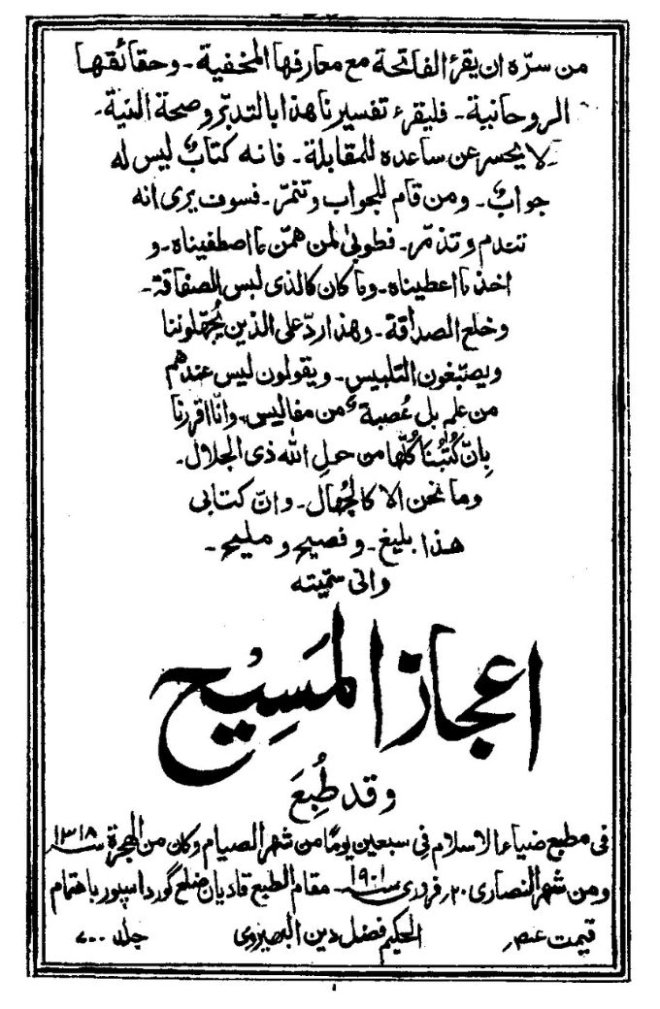 من سرّه ان يقرء الفاتحة مع معارفها المخفية ۔ و حقائقها
الروحانية ۔ فليقرء تفسيرنا هذا بالتدبّر و صحة النية ۔
لا يحسر عن ساعده للمقابلة ۔ فانه كتابٌ ليس له
جوابٌ ۔ و من قام للجواب و تنمّر ۔ فسوف يرى انه
تندم و تذمّر ۔ فطوبىٰ لمن همّن ما اصطفيناه ۔ و
اخذ ما اعطيناه ۔ وما كان كالذى لبس الصفاقة ۔
و خلع الصداقة ۔ وهذا ردّ على الذين يُجهّلوننا
ويصتبغون التلبيس ۔ ويقولون ليس عندهم
من علم بل عُصبة من مفاليس ۔ وانّا اقررنا
بِانّ كُتُبنَا كُلّها من حول الله ذى الجلال ۔
وما نحن الا كالجُهال ۔ وانّ كتابى
هذا بليغ ۔ و فصيح و مليح ۔
وانى سمّيته
اعجاز المَسِيْح
وقد طُبِعَ
فى مطبع ضياء الاسلام فِى سبعين يومًا من شهر الصيام وكان من الهجرة ۱۳۱۸
ومن شهر النصارى ۲۰ فرورى ۱۹۰۱ ۔ مقام الطبع قاديان ضلع گورداسپور باهتمام
قيمت الحكيم فضل دين البهيروى جلد ۷۰۰